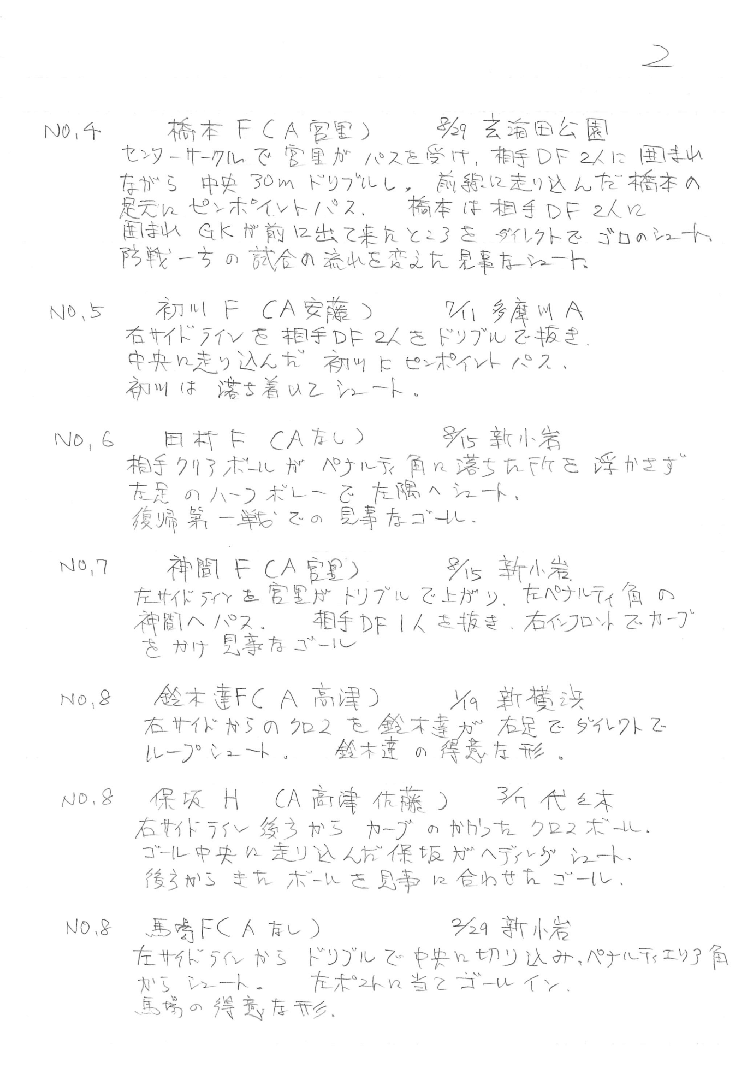 2
NO,4 橋本 F (A 宮里) 8/29 玄海田公園
センターサークルで 宮里が パスを受け、相手DF 2人に 囲まれ
ながら 中央 30m ドリブルし。 前線に走り込んだ橋本の
足元に ピンポイントパス. 橋本は相手DF 2人に
囲まれ GKが前に出て来たところを ダイレクトで ゴロのシュート、
防戦一方の試合の流れを変えた見事なシュート.
NO,5 初川 F (A安藤) 7/11 多摩川A
右サイドラインを相手DF 2人をドリブルで抜き.
中央に走り込んだ 初川に ピンポイントパス.
初川は 落ち着いて シュート。
NO,6 田村 F (Aなし) 8/15 新小岩
相手クリアボールが ペナルティ角に落ちた所を 浮かさず
左足のハーフボレーで左隅へシュート.
復帰第一戦での見事なゴール.
NO,7 神間 F (A宮里) 8/15 新小岩
左サイドラインを宮里がドリブルで上がり、左ペナルティ角の
神間へパス. 相手DF 1人を抜き、右インフロントでカーブ
をかけ見事なゴール
NO,8 鈴木達F( A 高津) 1/19 新横浜
右サイドからのクロスを鈴木達が 右足でダイレクトで
ループシュート. 鈴木達の得意な形.
NO,8 保坂 H (A高津 佐藤) 3/7 代々木
右サイドライン後ろから カーブのかかった クロスボール.
ゴール中央に走り込んだ保坂がヘディングシュート.
後ろからきた ボールを見事に合わせたゴール.
NO,8 馬場F(Aなし) 2/29 新小岩
左サイドラインから ドリブルで中央に切り込み、ペナルティエリア角
からシュート. 左ポストに当てゴールイン.
馬場の得意な形.